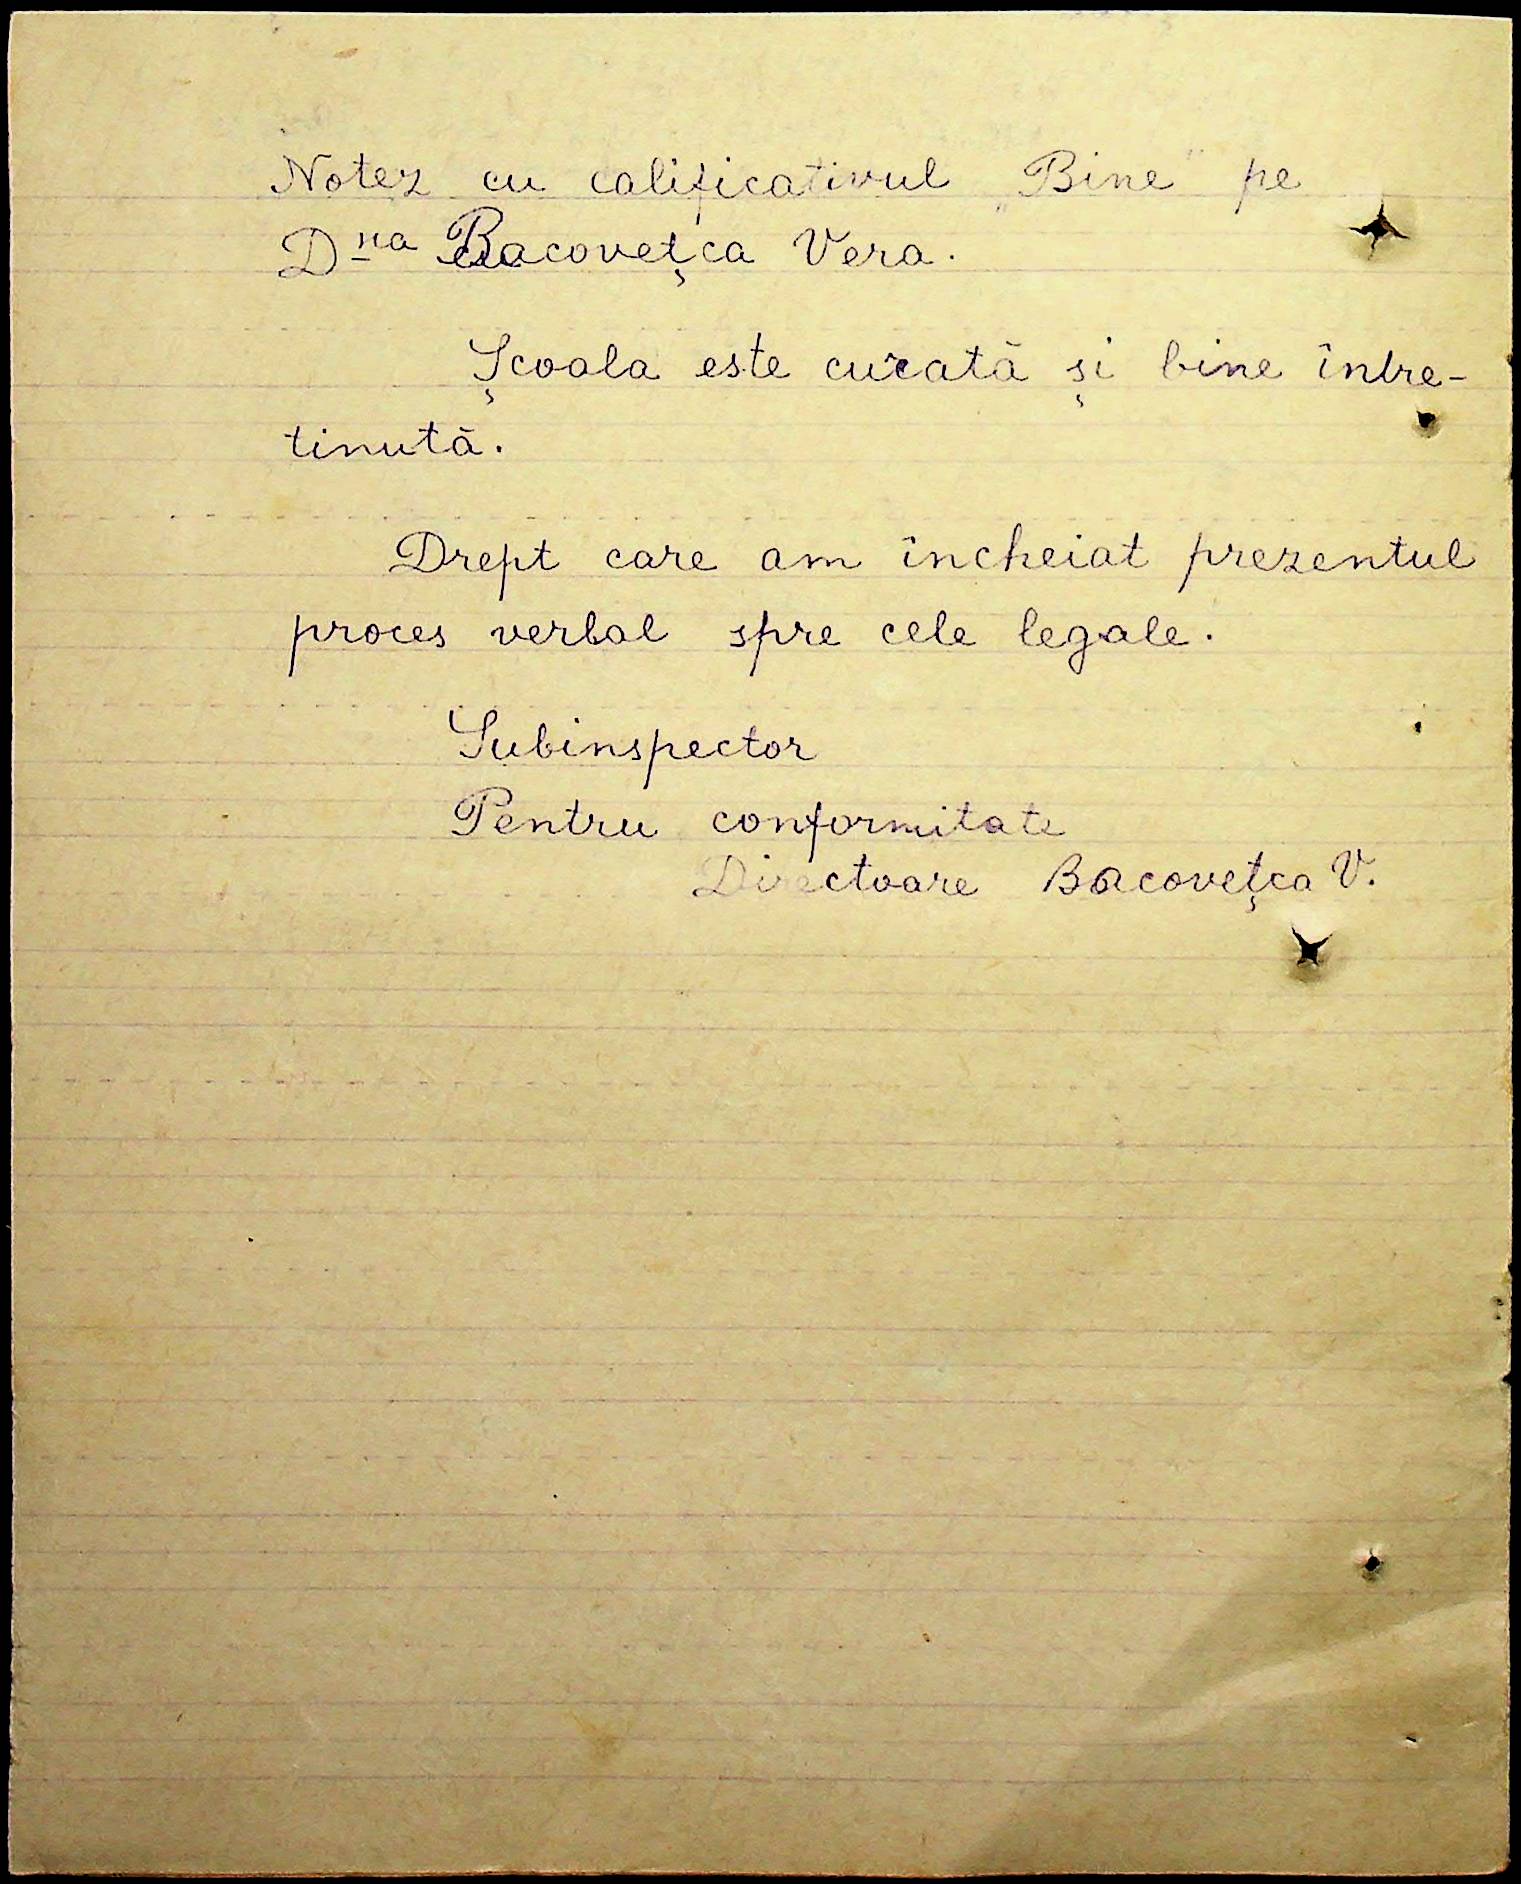 Notez cu calificativul „Bine" pe
Dna Bacovețca Vera.
Școala este curată și bine între-
tinută.
Drept care am încheiat prezentul
proces verbal spre cele legale.
Subinspector
Pentru conformitate
Directoare Bacovețca V.